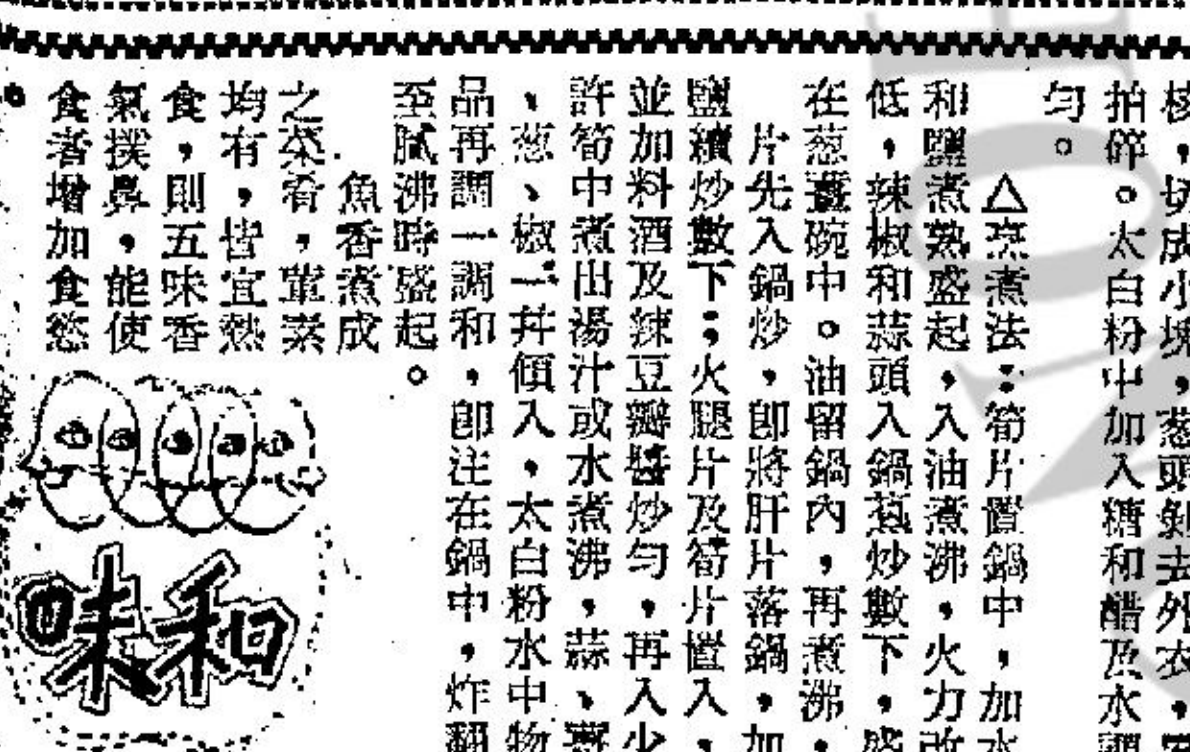 核，切成小塊，葱頭剝去外衣，
拍碎。太白粉中加入糖和醋及水調
勻。
△烹煮法：筍片置鍋中，加水
和鹽煮熟盛起，入油煮沸，火力改
低，辣椒和蒜頭入鍋葱炒數下，盛
在葱薑碗中。油留鍋內，再煮沸，
片先入鍋炒，卽將肝片落鍋，加
鹽續炒數下；火腿片及筍片置入，
並加料酒及辣豆瓣醬炒勻，再入少
許筍中煮出湯汁或水煮沸，蒜、薑
、葱、椒一幷傾入，太白粉水中物
品再調一調和，卽注在鍋中，炸翻
至膩沸時盛起。
魚香煮成
之菜肴，葷素
均有，皆宜熱
食，則五味香
氣撲鼻，能使
食者增加食慾
。
味和